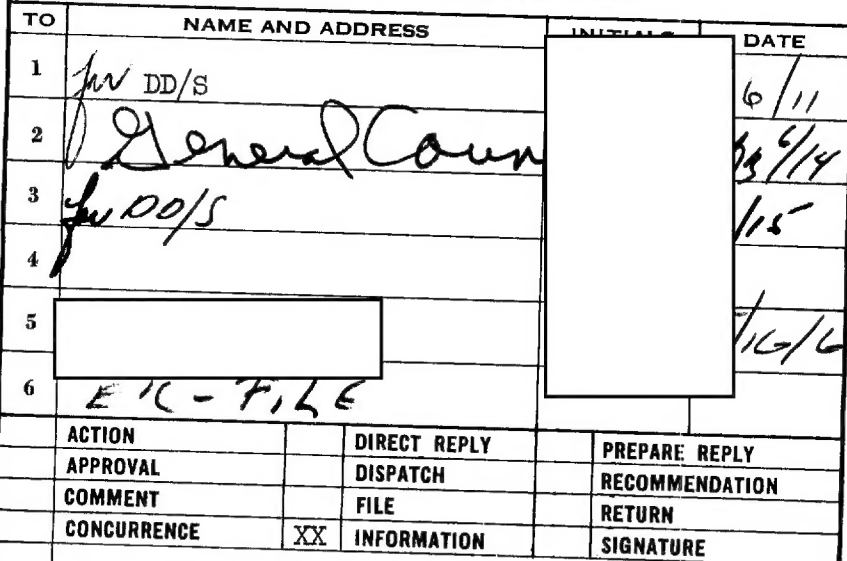 TO NAME AND ADDRESS DATE
1 DD/S 6/11
2 General Coun 6/14
3 DD/S /15
4
5 /16/6
6 - FILE
ACTION DIRECT REPLY PREPARE REPLY
APPROVAL DISPATCH RECOMMENDATION
COMMENT FILE RETURN
CONCURRENCE XX INFORMATION SIGNATURE